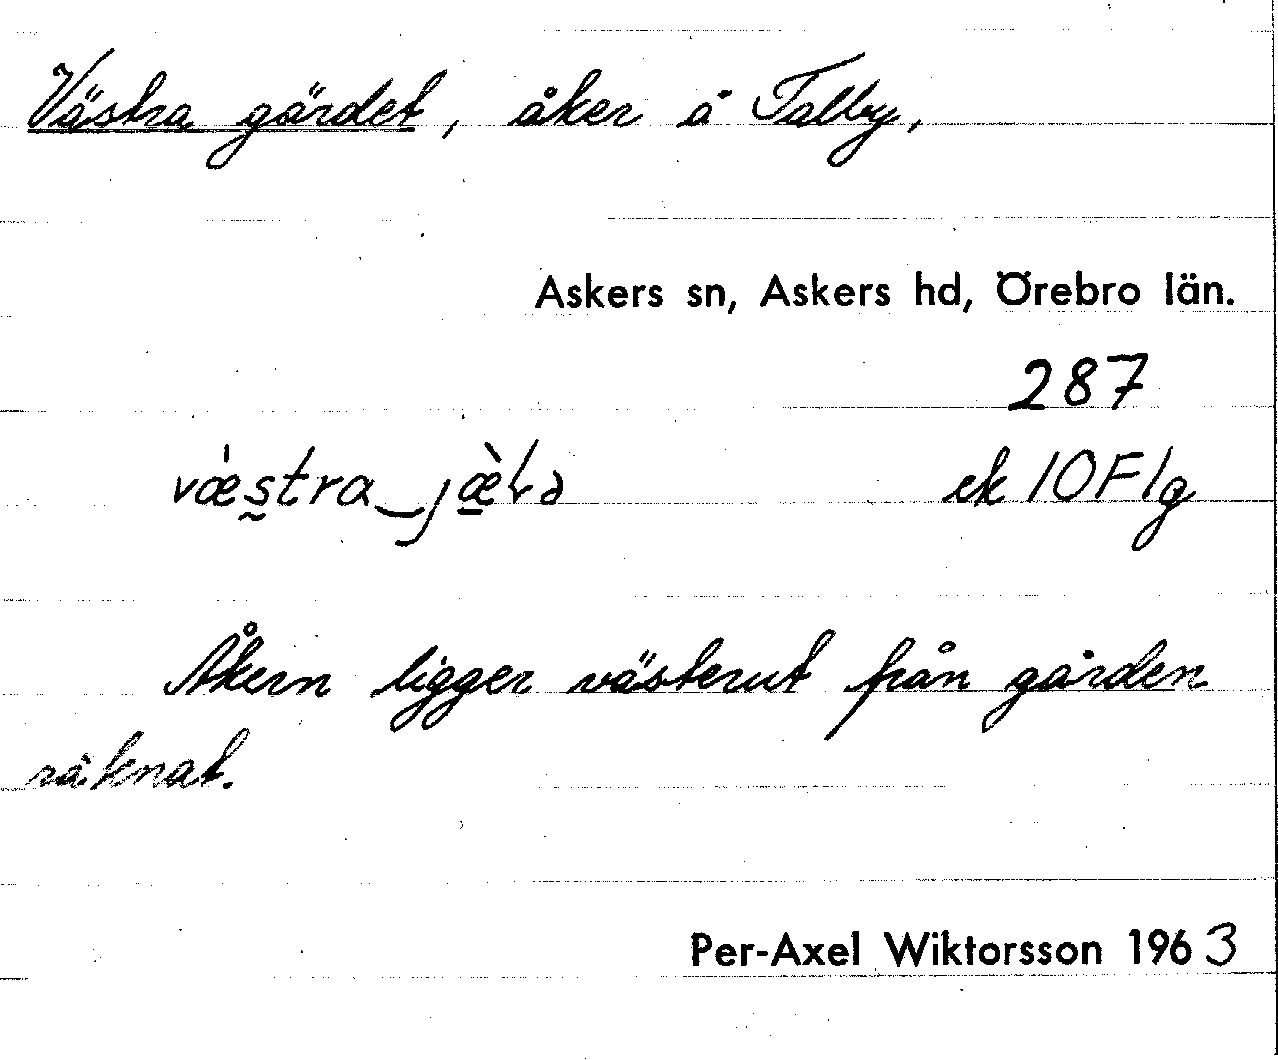 Västra gärdet, åker å Talby,
Askers sn, Askers hd, Örebro län.
287
ek 10F1g
Åkern ligger västerut från gården
räknat.
Per-Axel Wiktorsson 1963